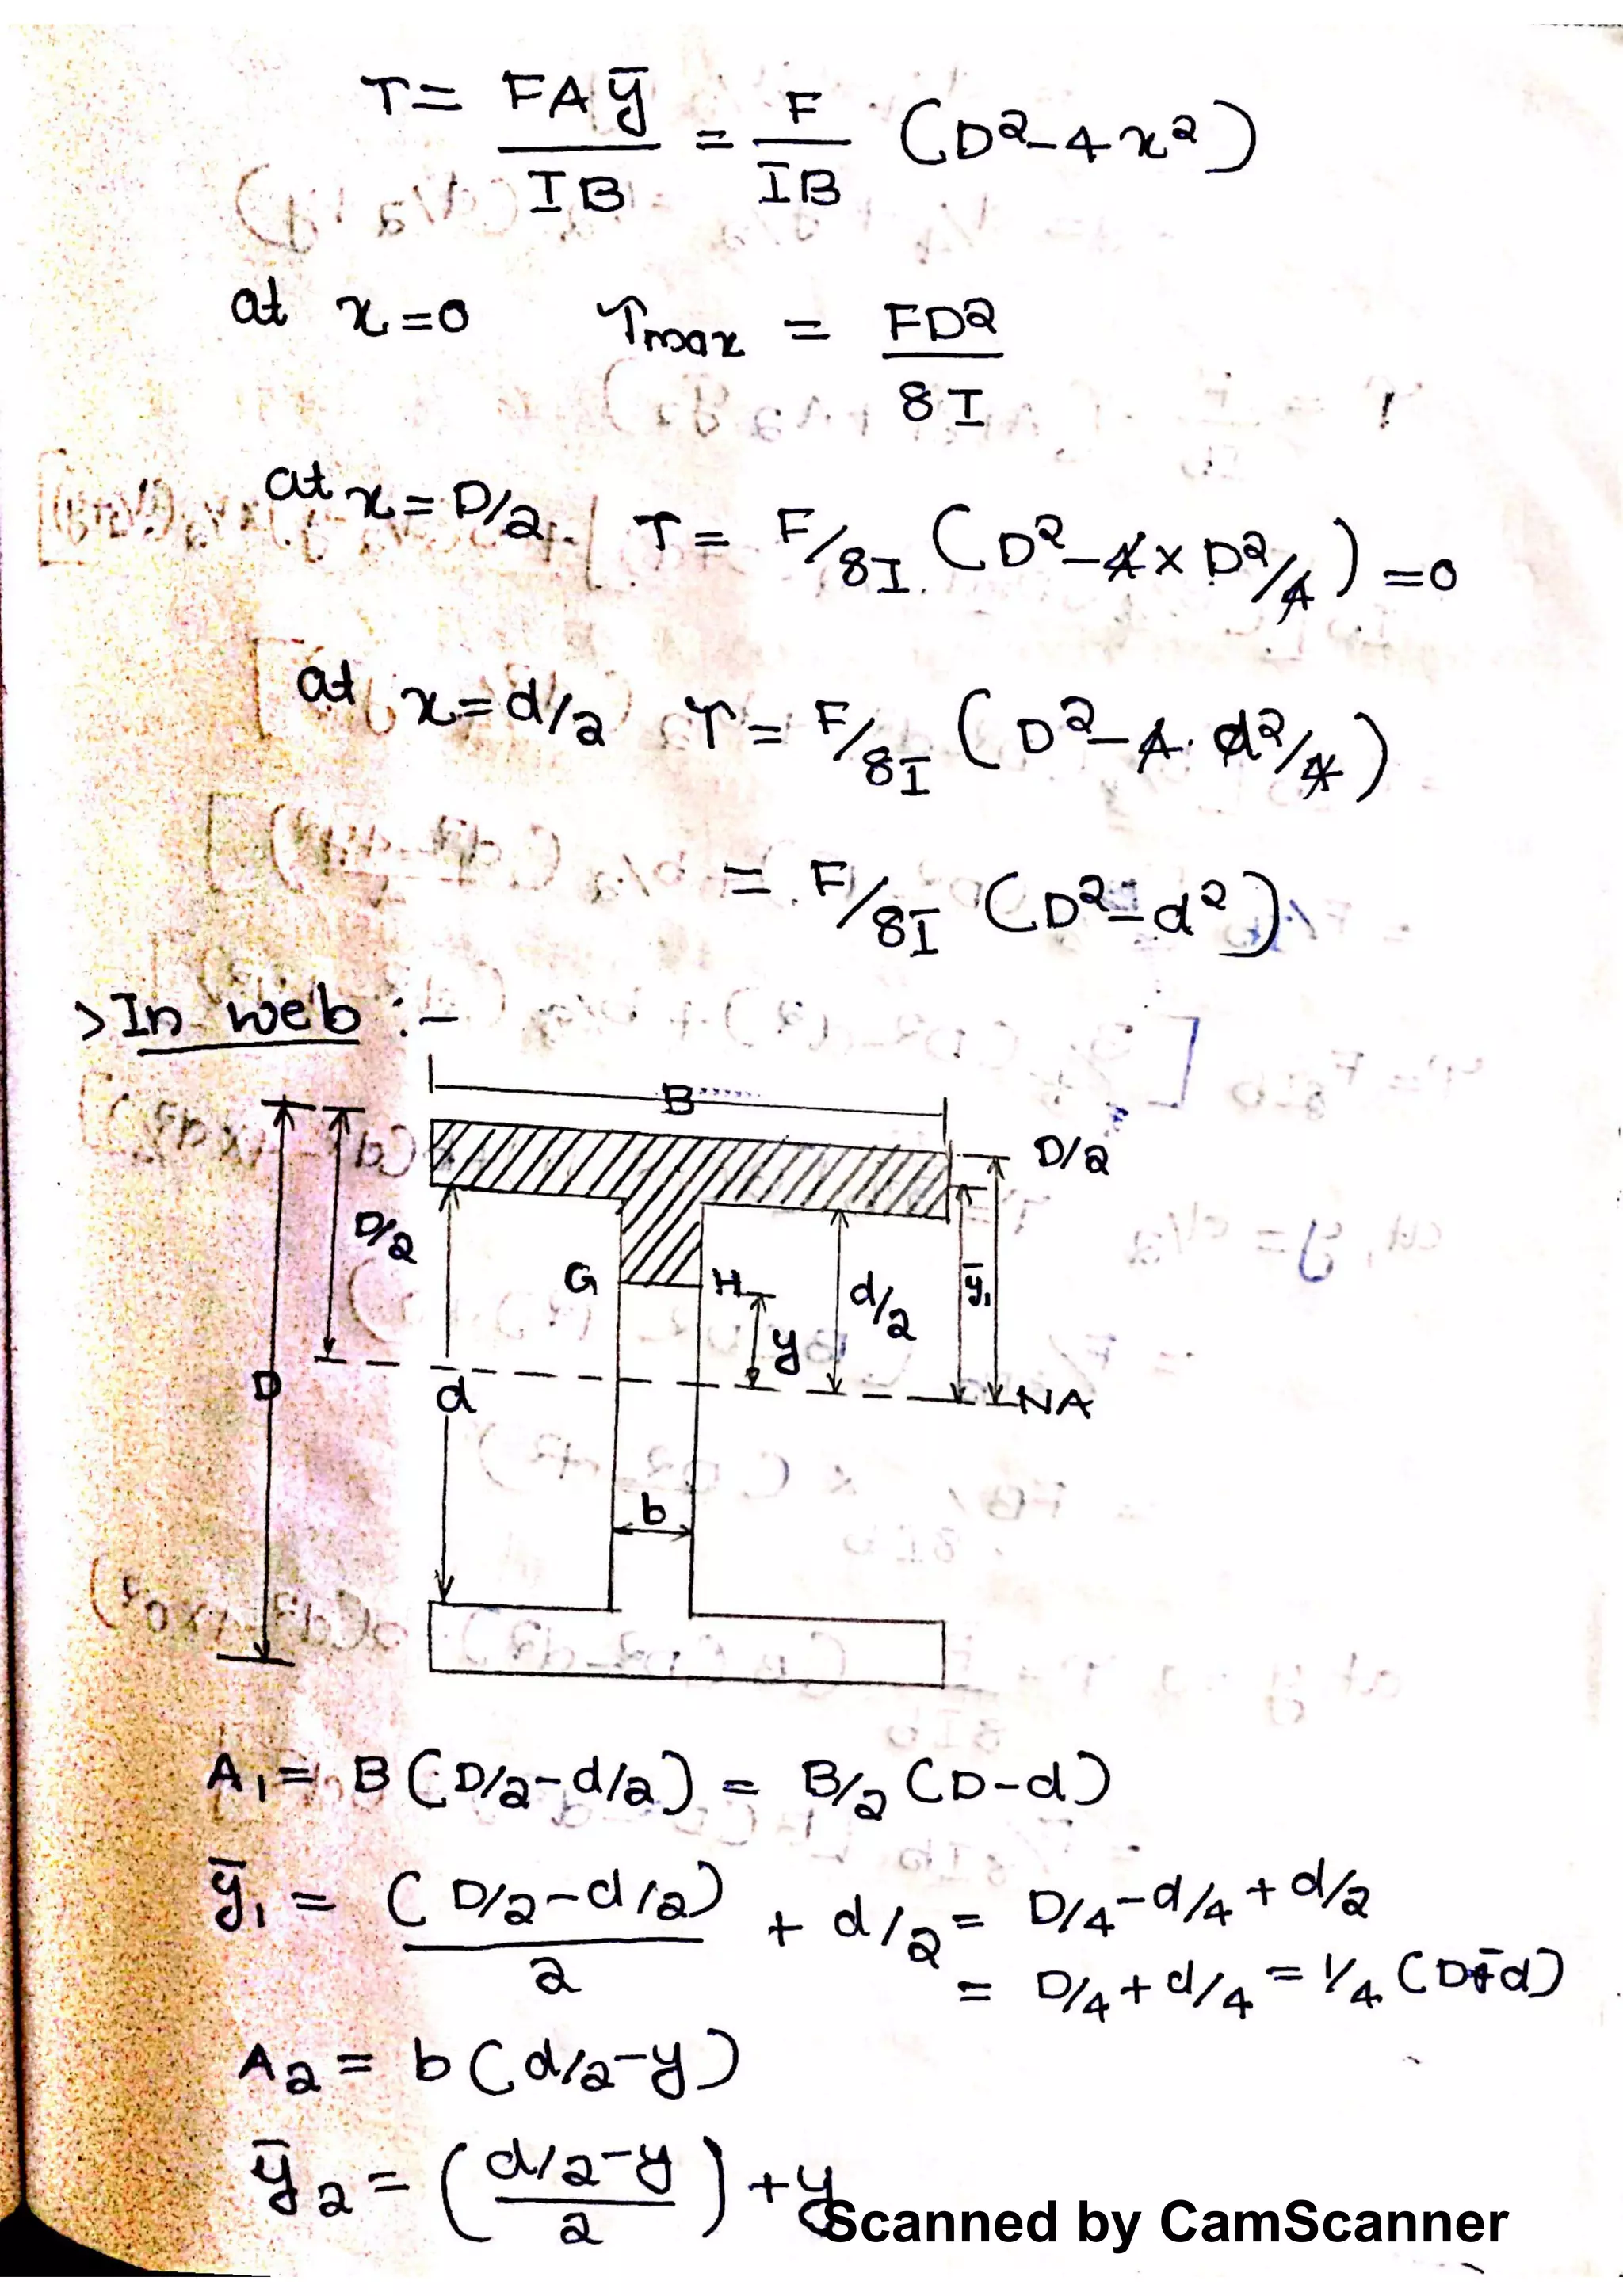 τ = FAȳ/IB = F/IB (D² - 4x²)
at x=0 τmax = FD²/8I
at x = D/2 τ = F/8I (D² - 4 x D²/4) = 0
at x = d/2 τ = F/8I (D² - 4. d²/4)
= F/8I (D² - d²)
>In web :-
B
D/2
D/2
G H d/2 ȳ₁
y
D d NA
b
A₁ = B(D/2 - d/2) = B/2 (D-d)
ȳ₁ = (D/2 - d/2)/2 + d/2 = D/4 - d/4 + d/2
= D/4 + d/4 = 1/4 (D+d)
A₂ = b(d/2 - y)
ȳ₂ = ((d/2 - y)/2) + y
Scanned by CamScanner